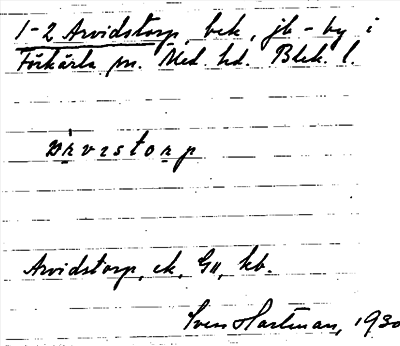 1-2 Arvidstorp, bek, jb-by i
Förkärla sn. Med. hd. Blek. l.
Arvidstorp, ek, GII, kb.
Sven Hartman, 1930